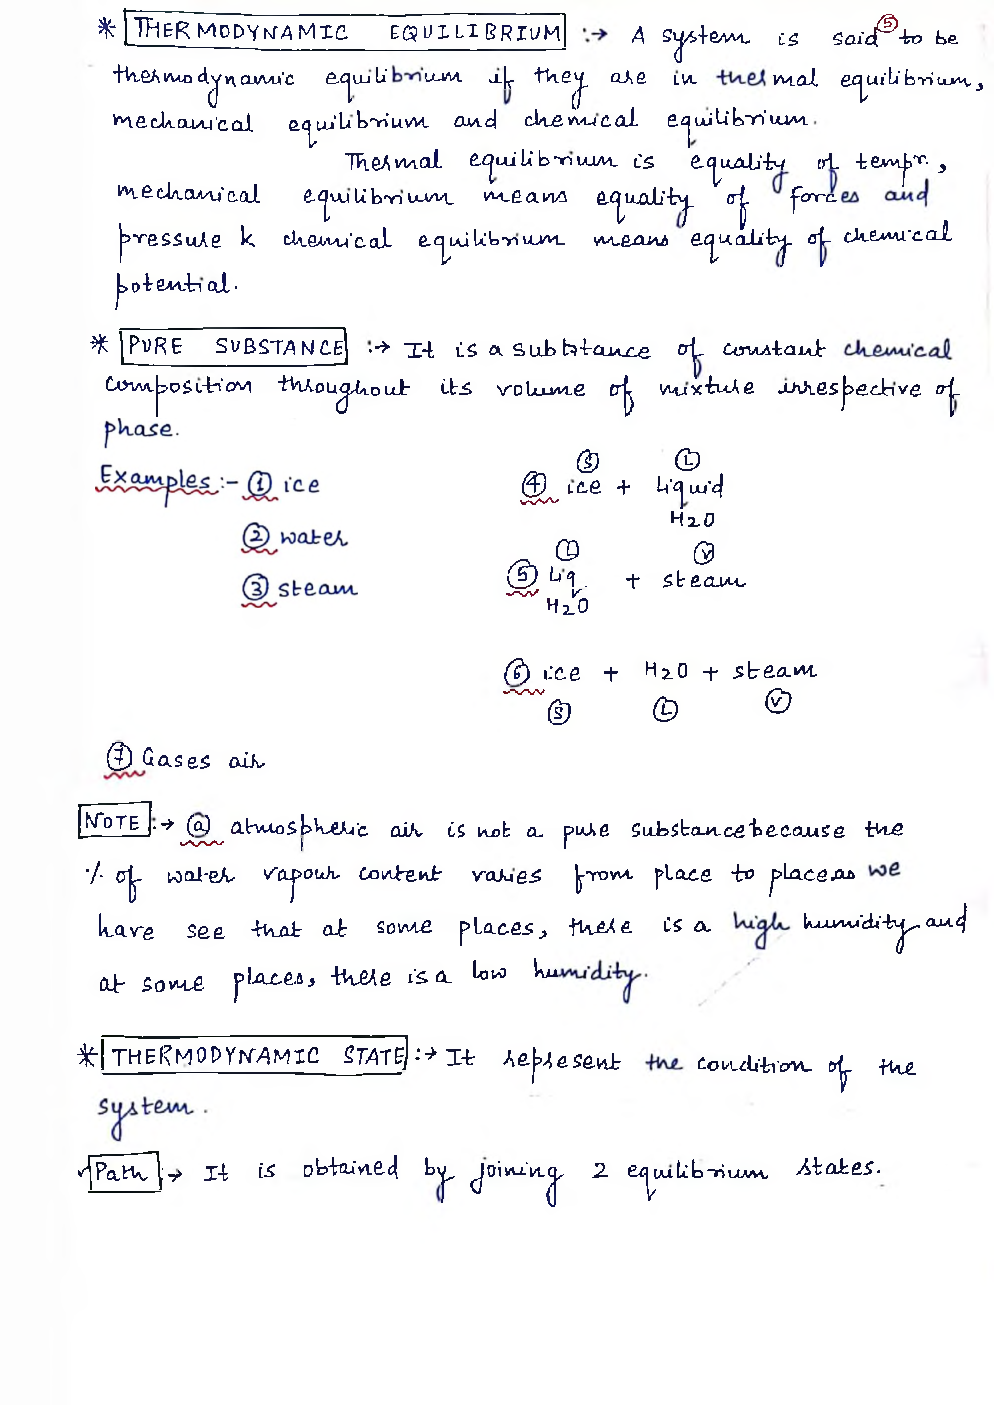 * THERMODYNAMIC EQUILIBRIUM :→ A system is said to be
5
thermodynamic equilibrium if they are in thermal equilibrium,
mechanical equilibrium and chemical equilibrium.
Thermal equilibrium is equality of tempr.,
mechanical equilibrium means equality of forces and
pressure k chemical equilibrium means equality of chemical
potential.
* PURE SUBSTANCE :→ It is a substance of constant chemical
composition throughout its volume of mixture irrespective of
phase.
Examples :- ① ice
② water
③ steam
Ⓢ Ⓛ
④ ice + Liquid
H2O
Ⓛ Ⓥ
⑤ Liq. + steam
H2O
⑥ ice + H2O + steam
Ⓢ Ⓛ Ⓥ
⑦ Gases air
NOTE :→ ⓐ atmospheric air is not a pure substance because the
% of water vapour content varies from place to place as we
have see that at some places, there is a high humidity and
at some places, there is a low humidity.
* THERMODYNAMIC STATE :→ It represent the condition of the
system.
✓ Path :→ It is obtained by joining 2 equilibrium states.